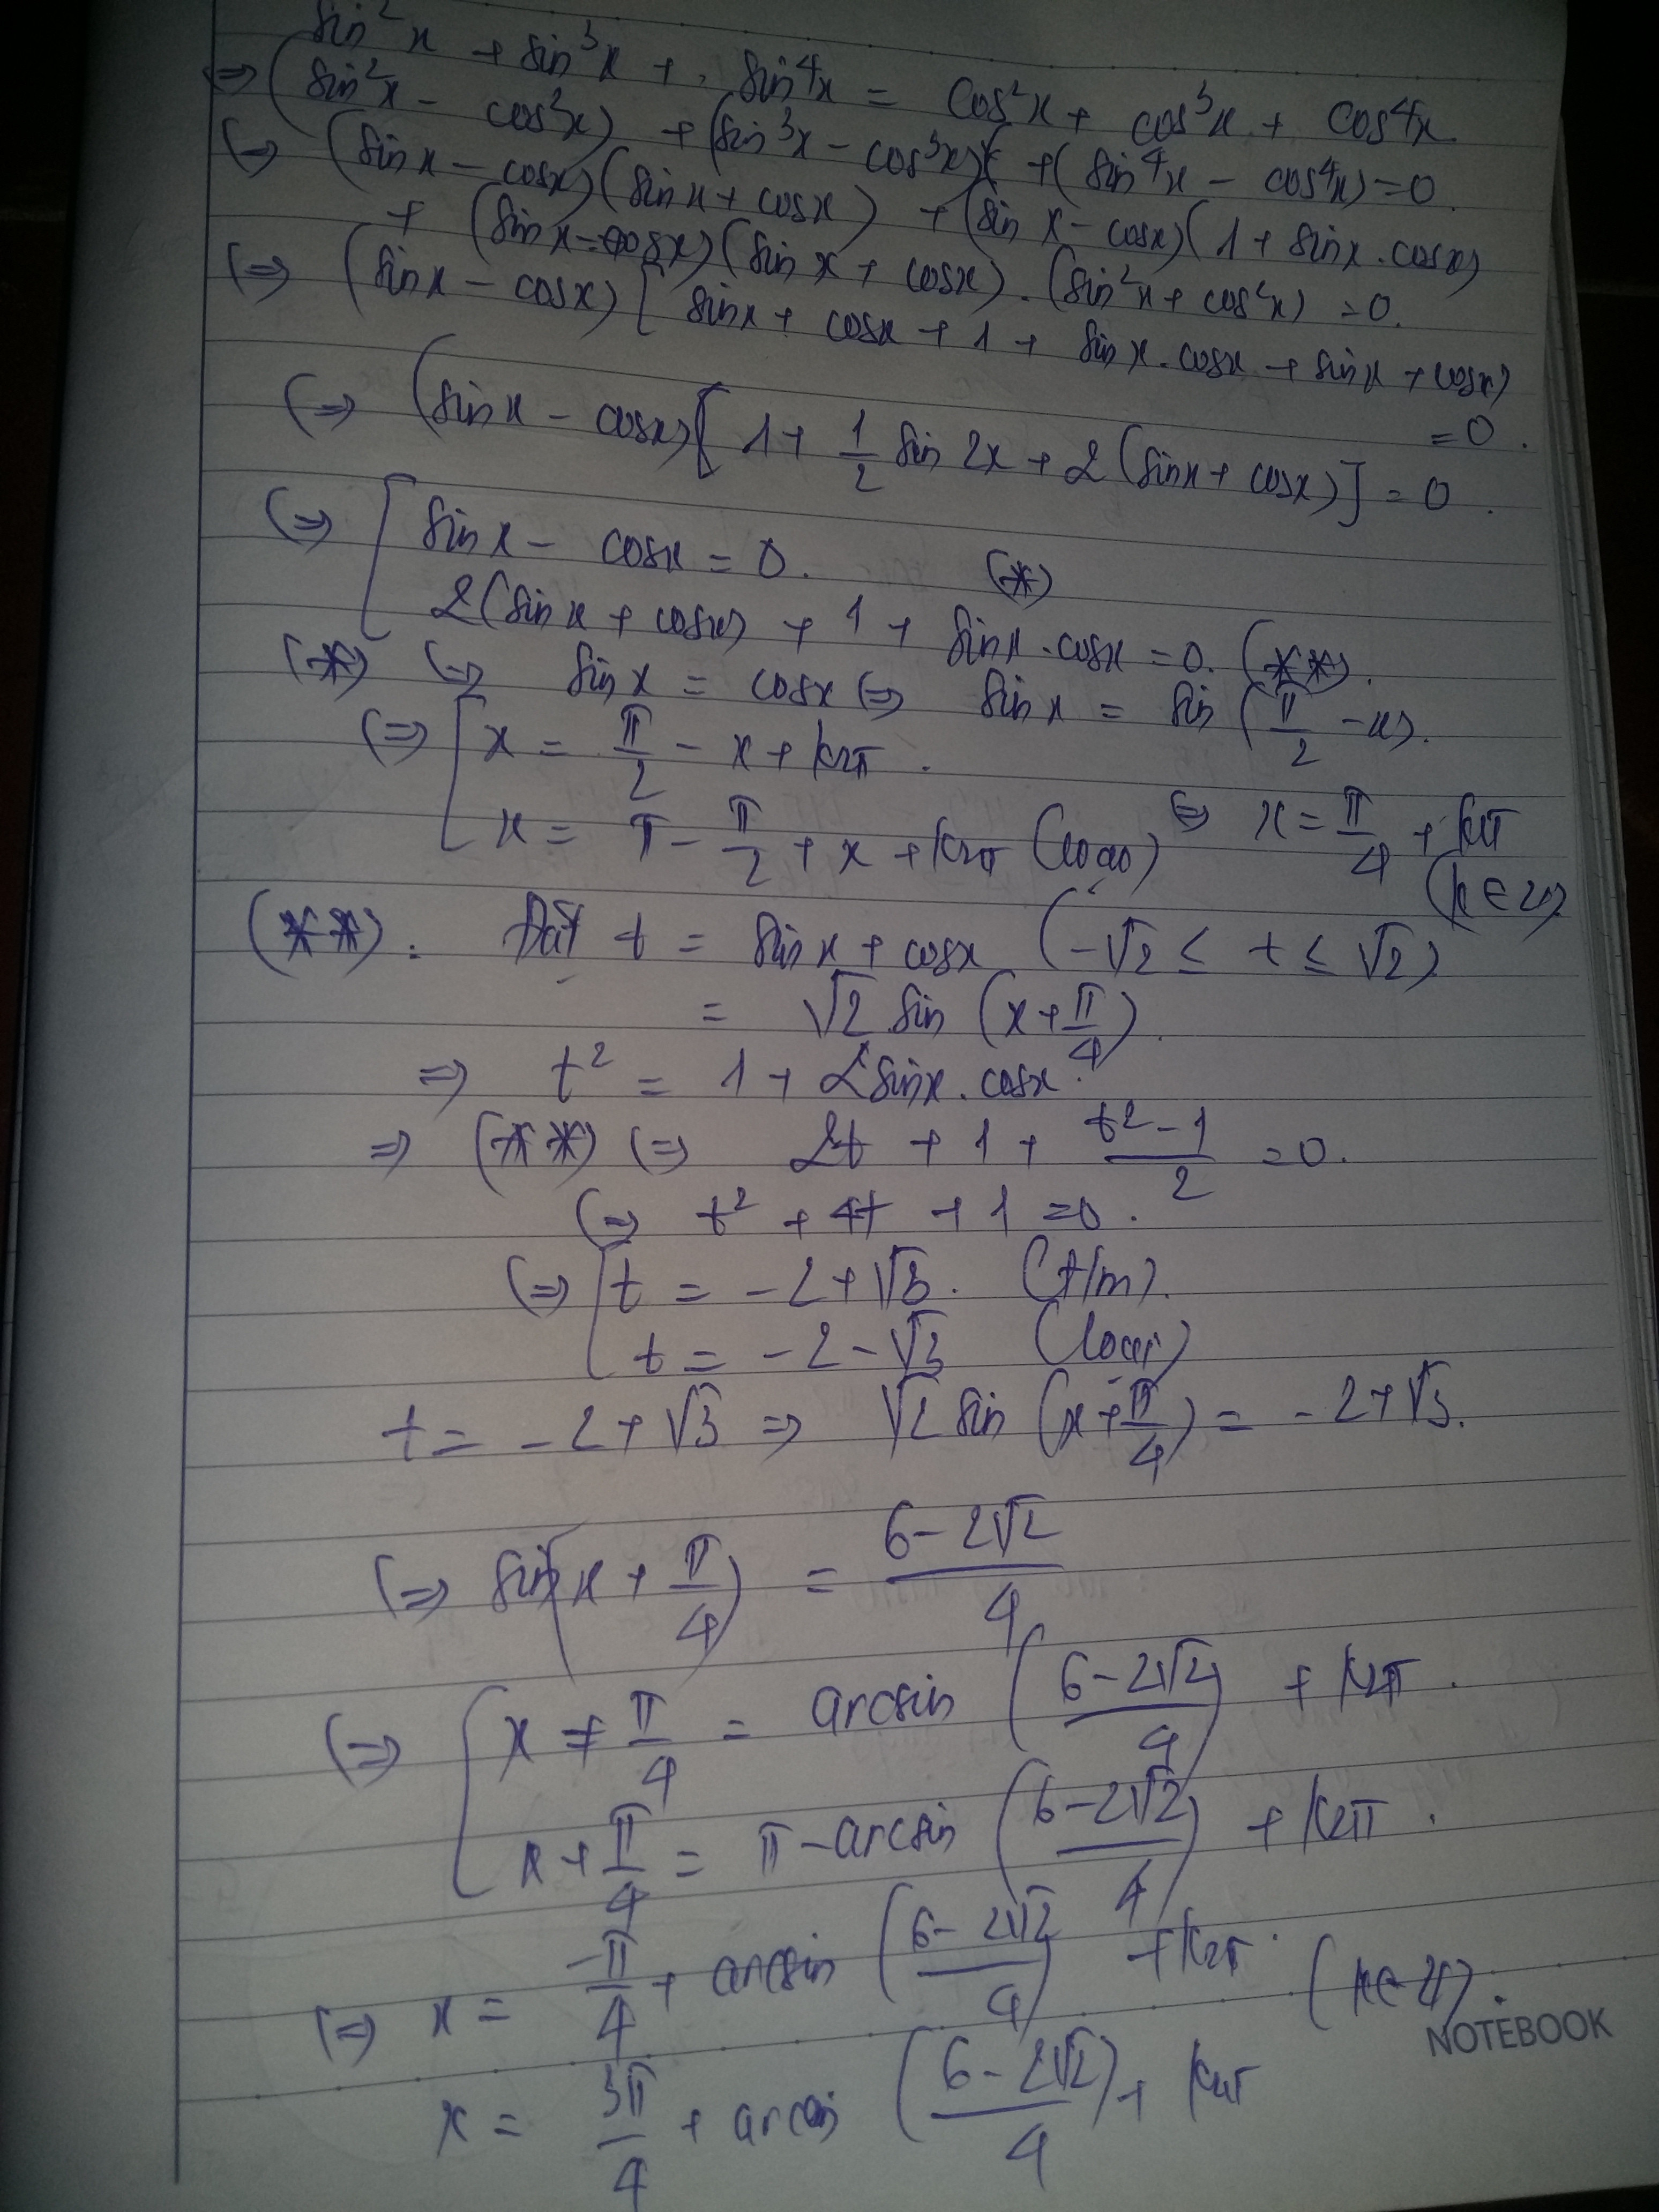 sin²x + sin³x + sin⁴x = cos²x + cos³x + cos⁴x
⇔ (sin²x - cos²x) + (sin³x - cos³x) + (sin⁴x - cos⁴x) = 0.
(⇔) (sinx - cosx)(sinx + cosx) + (sinx - cosx)(1 + sinx.cosx)
+ (sinx - cosx)(sinx + cosx).(sin²x + cos²x) = 0.
(⇔) (sinx - cosx)[sinx + cosx + 1 + sinx.cosx + sinx + cosx)
= 0.
(⇔) (sinx - cosx)[1 + 1/2 sin2x + 2(sinx + cosx)] = 0.
(⇔) [ sinx - cosx = 0. (*)
2(sinx + cosx) + 1 + sinx.cosx = 0. (**).
(*) (⇔) sinx = cosx (⇔) sinx = sin(π/2 - x).
(⇔) [ x = π/2 - x + k2π.
x = π - π/2 + x + k2π (loại) ⇔ x = π/4 + kπ
(k ∈ Z)
(**): Đặt t = sinx + cosx (-√2 ≤ t ≤ √2)
= √2 sin(x + π/4).
⇒ t² = 1 + 2sinx.cosx.
⇒ (**) (⇔) 2t + 1 + (t² - 1)/2 = 0.
(⇔) t² + 4t + 1 = 0.
(⇔) [ t = -2 + √3. (t/m).
t = -2 - √3 (loại)
t = -2 + √3 ⇒ √2 sin(x + π/4) = -2 + √3.
(⇔) sin(x + π/4) = (6 - 2√2)/4
(⇔) [ x + π/4 = arcsin((6 - 2√2)/4) + k2π.
x + π/4 = π - arcsin((6 - 2√2)/4) + k2π.
(⇔) x = -π/4 + arcsin((6 - 2√2)/4) + k2π. (k ∈ Z).
NOTEBOOK
x = 3π/4 + arcsin((6 - 2√2)/4) + k2π